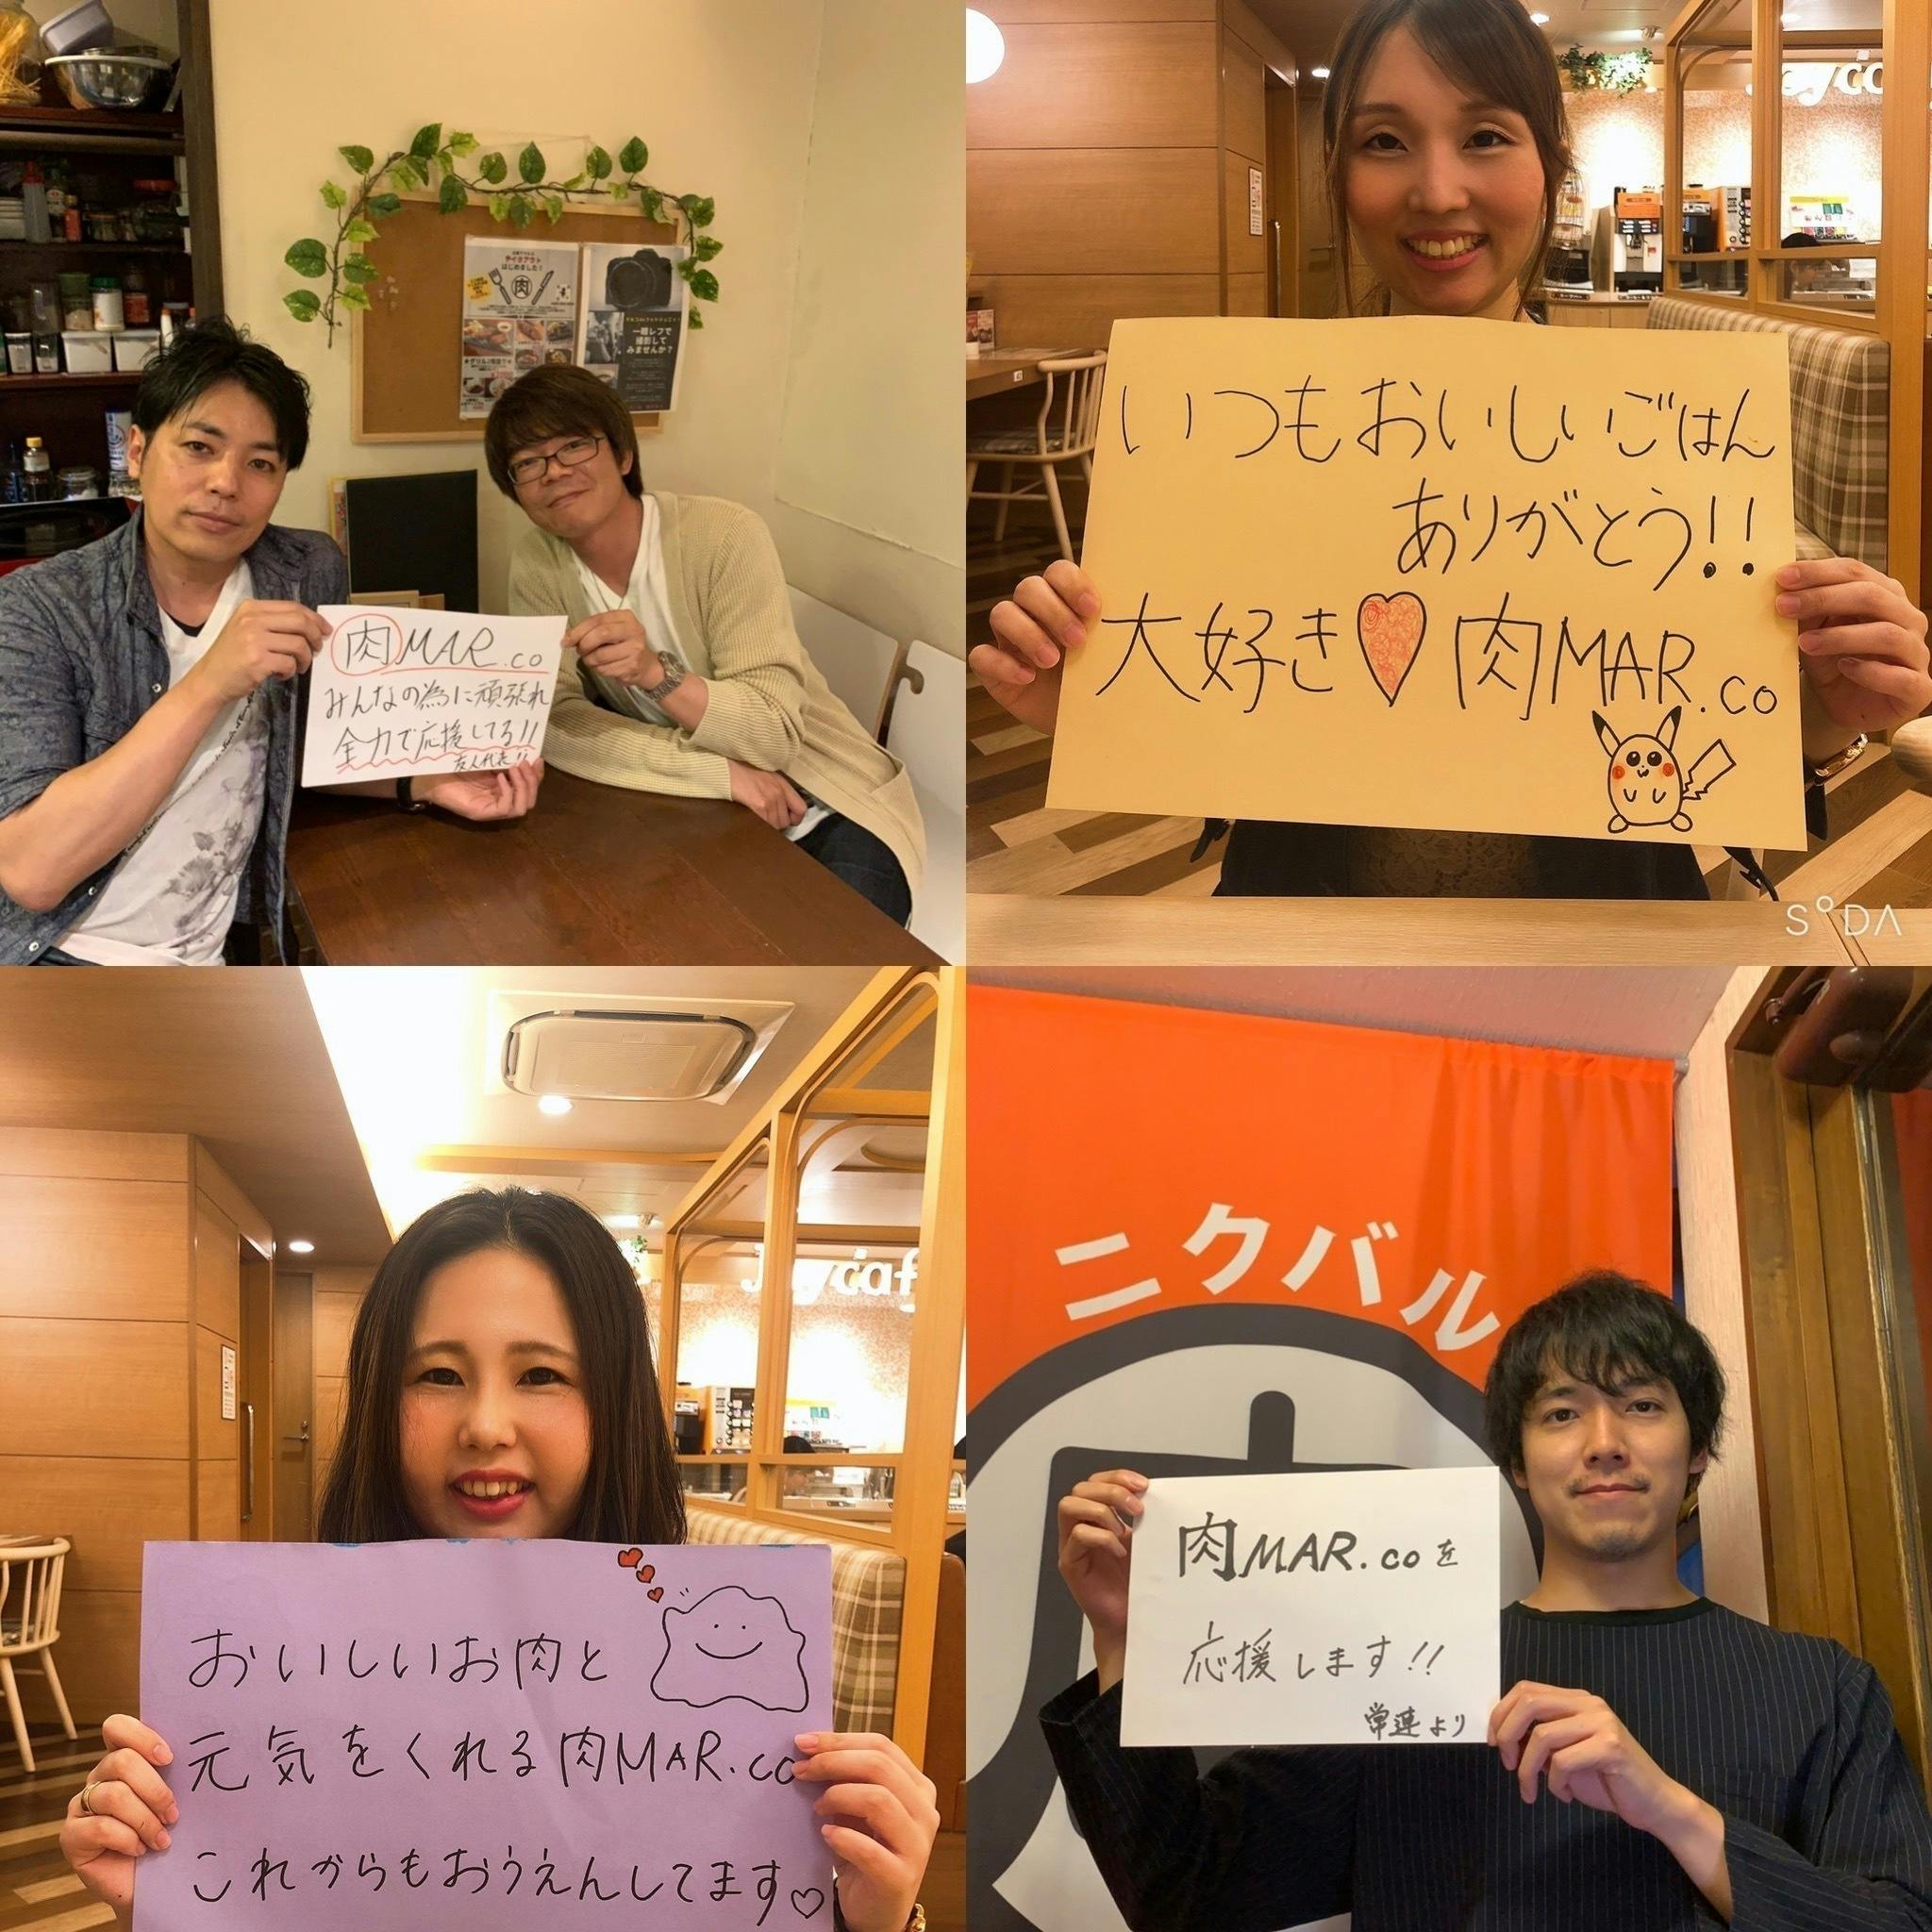 テイクアウト
はじめました!
肉
一眼レフで
撮影して
みませんか?
肉MAR.co
みんなの為に頑張れ
全力で応援してる!!
友人代表!!
Joyco
いつもおいしいごはん
ありがとう!!
大好き♥肉MAR.co
SODA
Joycaf
おいしいお肉と
元気をくれる肉MAR.co
これからもおうえんしてます♡
ニクバル
肉MAR.coを
応援します!!
常連より